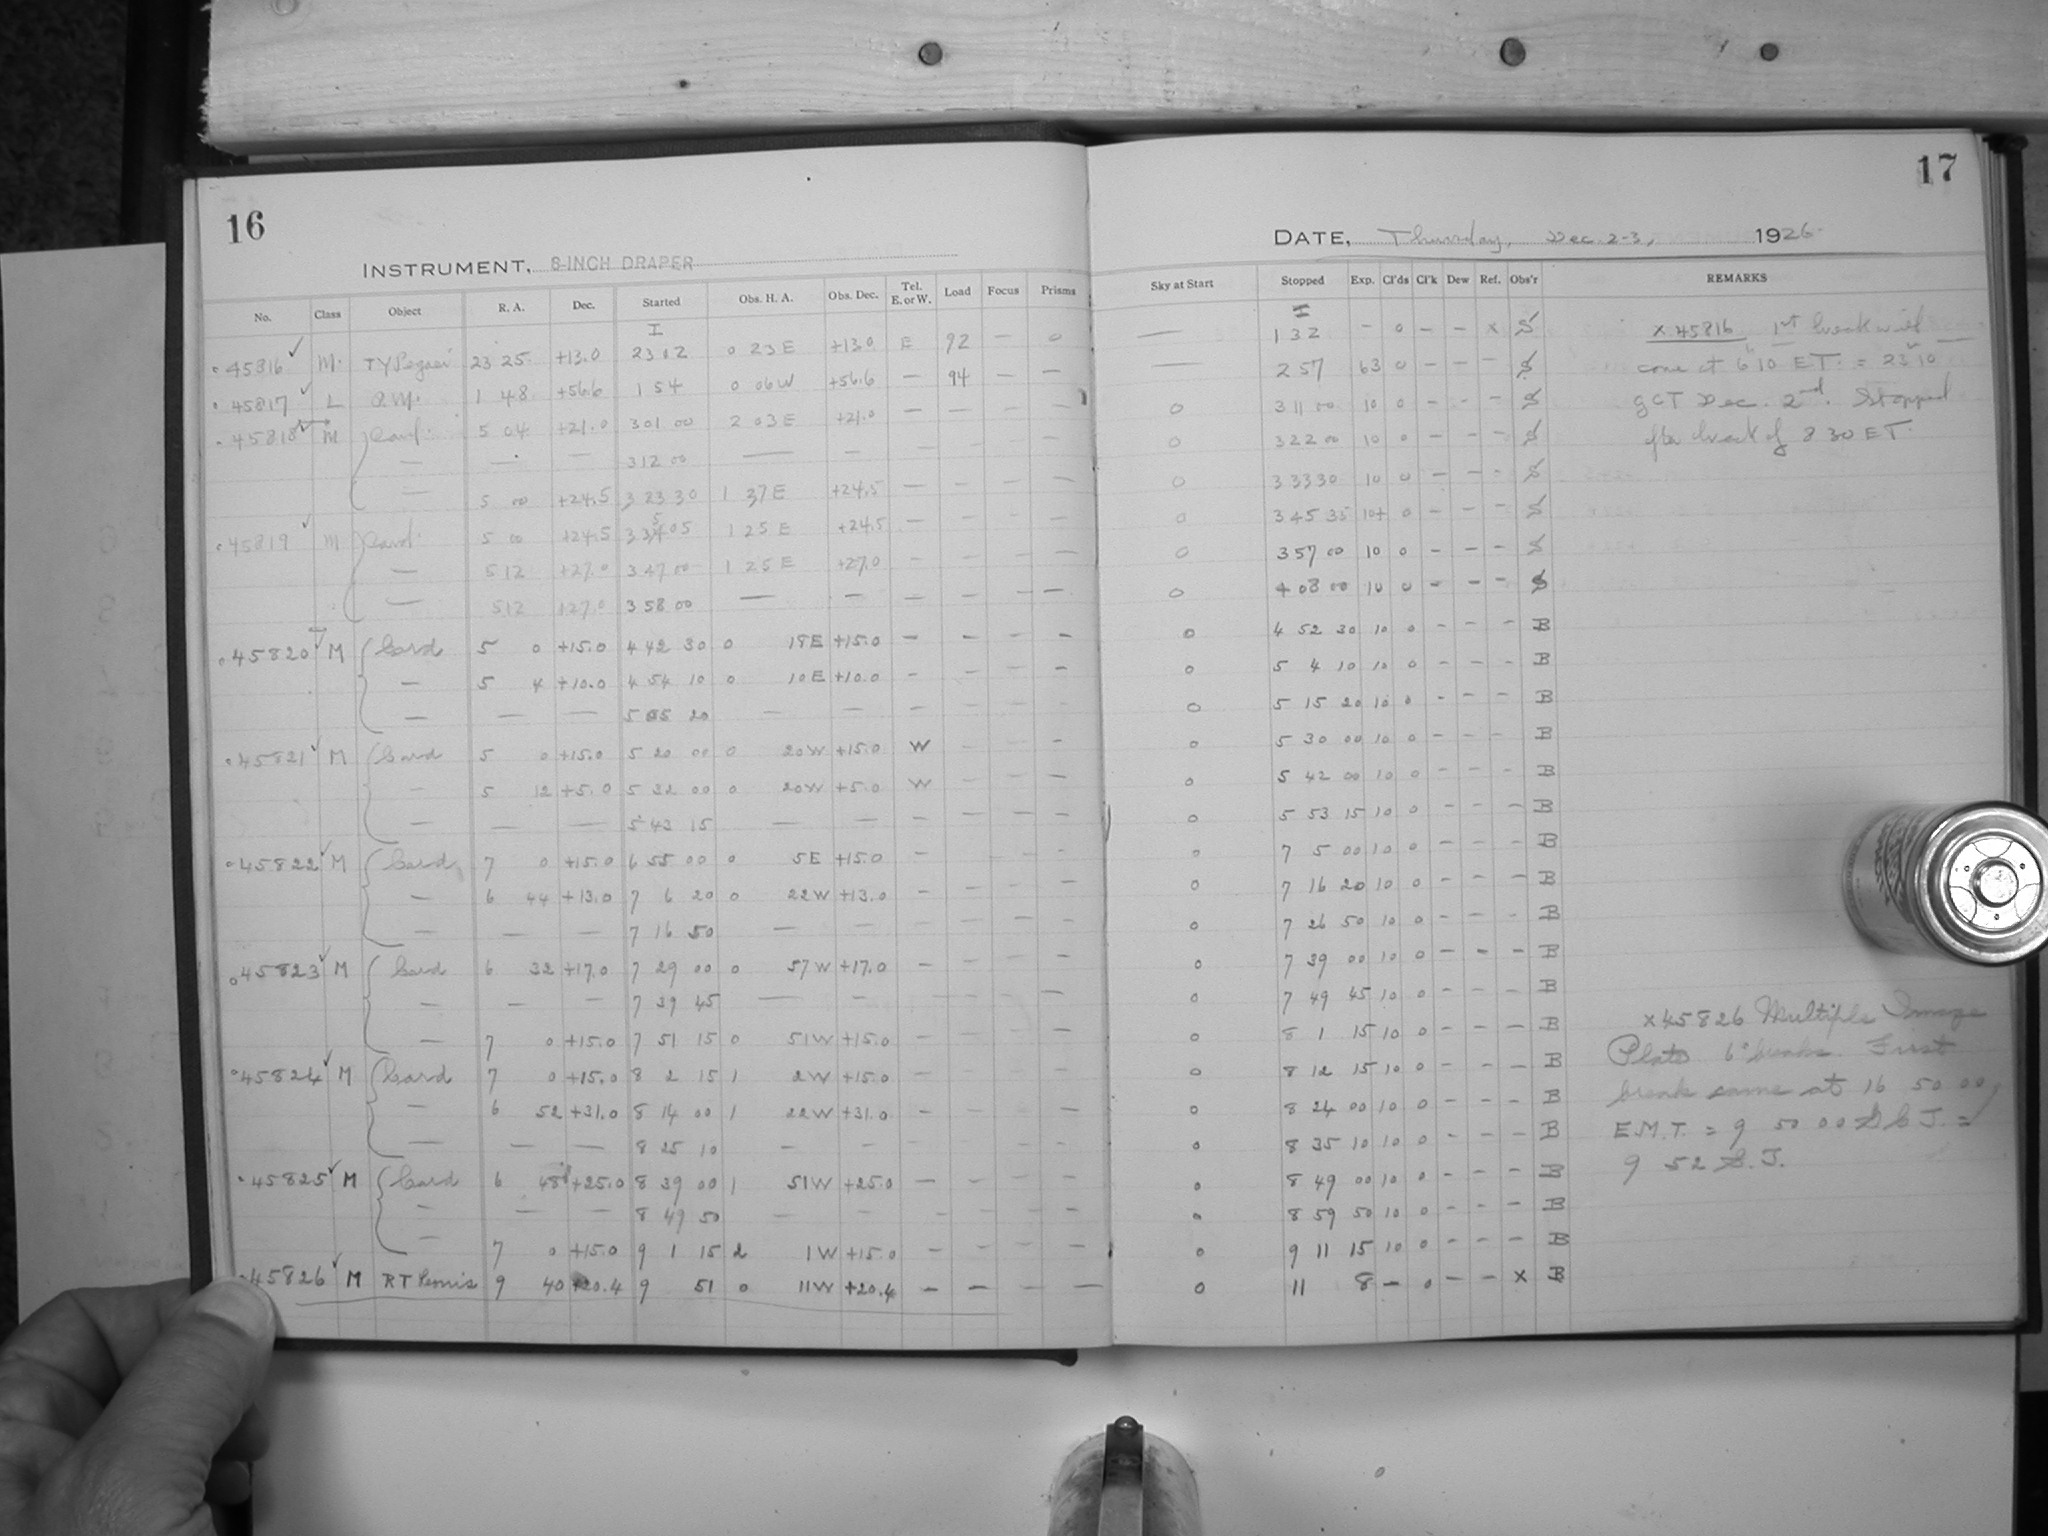 16
INSTRUMENT, 8-INCH DRAPER
No. Class Object R. A. Dec. Started Obs. H. A. Obs. Dec. Tel. E. or W. Load Focus Prisms
I
45816 M. TY Pegasi 23 25 +13.0 23 02 0 23 E +13.0 E 92 — 0
45817 L 1 48 +56.6 1 54 0 06 W +56.6 — 94 — —
45818 M 5 04 +21.0 3 01 00 2 03 E +21.0 — — — —
— — — 3 12 00 — — — — — —
— 5 00 +24.5 3 23 30 1 37 E +24.5 — — — —
45819 M Card 5 00 +24.5 3 35 05 1 25 E +24.5 — — — —
— 5 12 +27.0 3 47 00 1 25 E +27.0 — — — —
— 5 12 +27.0 3 58 00 — — — — — —
45820 M Card 5 0 +15.0 4 42 30 0 18 E +15.0 — — — —
— 5 4 +10.0 4 54 10 0 10 E +10.0 — — — —
— — — 5 05 20 — — — — — —
45821 M Card 5 0 +15.0 5 20 00 0 20 W +15.0 W — — —
— 5 12 +5.0 5 32 00 0 20 W +5.0 W — — —
— — — 5 43 15 — — — — — —
45822 M Card 7 0 +15.0 6 55 00 0 5 E +15.0 — — — —
— 6 44 +13.0 7 6 20 0 22 W +13.0 — — — —
— — — 7 16 50 — — — — — —
45823 M Card 6 32 +17.0 7 29 00 0 57 W +17.0 — — — —
— — — 7 39 45 — — — — — —
— 7 0 +15.0 7 51 15 0 51 W +15.0 — — — —
45824 M Card 7 0 +15.0 8 2 15 1 2 W +15.0 — — — —
— 6 52 +31.0 8 14 00 1 22 W +31.0 — — — —
— — — 8 25 10 — — — — — —
45825 M Card 6 48 +25.0 8 39 00 1 51 W +25.0 — — — —
— — — 8 49 50 — — — — — —
— 7 0 +15.0 9 1 15 2 1 W +15.0 — — — —
45826 M RT Leonis 9 40 +20.4 9 51 0 11 W +20.4 — — — —
17
DATE, Thursday, Dec. 2-3, 1926
Sky at Start Stopped Exp. Cl'ds Cl'k Dew Ref. Obs'r REMARKS
I
— 1 32 — 0 — — x S
— 2 57 63 0 — — — S
0 3 11 00 10 0 — — — S
0 3 22 00 10 0 — — — S
0 3 33 30 10 0 — — — S
0 3 45 35 10+ 0 — — — S
0 3 57 00 10 0 — — — S
0 4 08 00 10 0 — — — S
0 4 52 30 10 0 — — — B
0 5 4 10 10 0 — — — B
0 5 15 20 10 0 — — — B
0 5 30 00 10 0 — — — B
0 5 42 00 10 0 — — — B
0 5 53 15 10 0 — — — B
0 7 5 00 10 0 — — — B
0 7 16 20 10 0 — — — B
0 7 26 50 10 0 — — — B
0 7 39 00 10 0 — — — B
0 7 49 45 10 0 — — — B
0 8 1 15 10 0 — — — B
0 8 12 15 10 0 — — — B
0 8 24 00 10 0 — — — B
0 8 35 10 10 0 — — — B
0 8 49 00 10 0 — — — B
0 8 59 50 10 0 — — — B
0 9 11 15 10 0 — — — B
0 11 8 — 0 — — x B
x 45816 1st break will
come at 6 10 ET. = 23 10
GCT Dec. 2nd. Stopped
after break of 8 30 ET.
x 45826 Multiple Image
Plate 6 breaks. First
break came at 16 50 00
E.M.T. = 9 50 00 =
9 52 S.T.